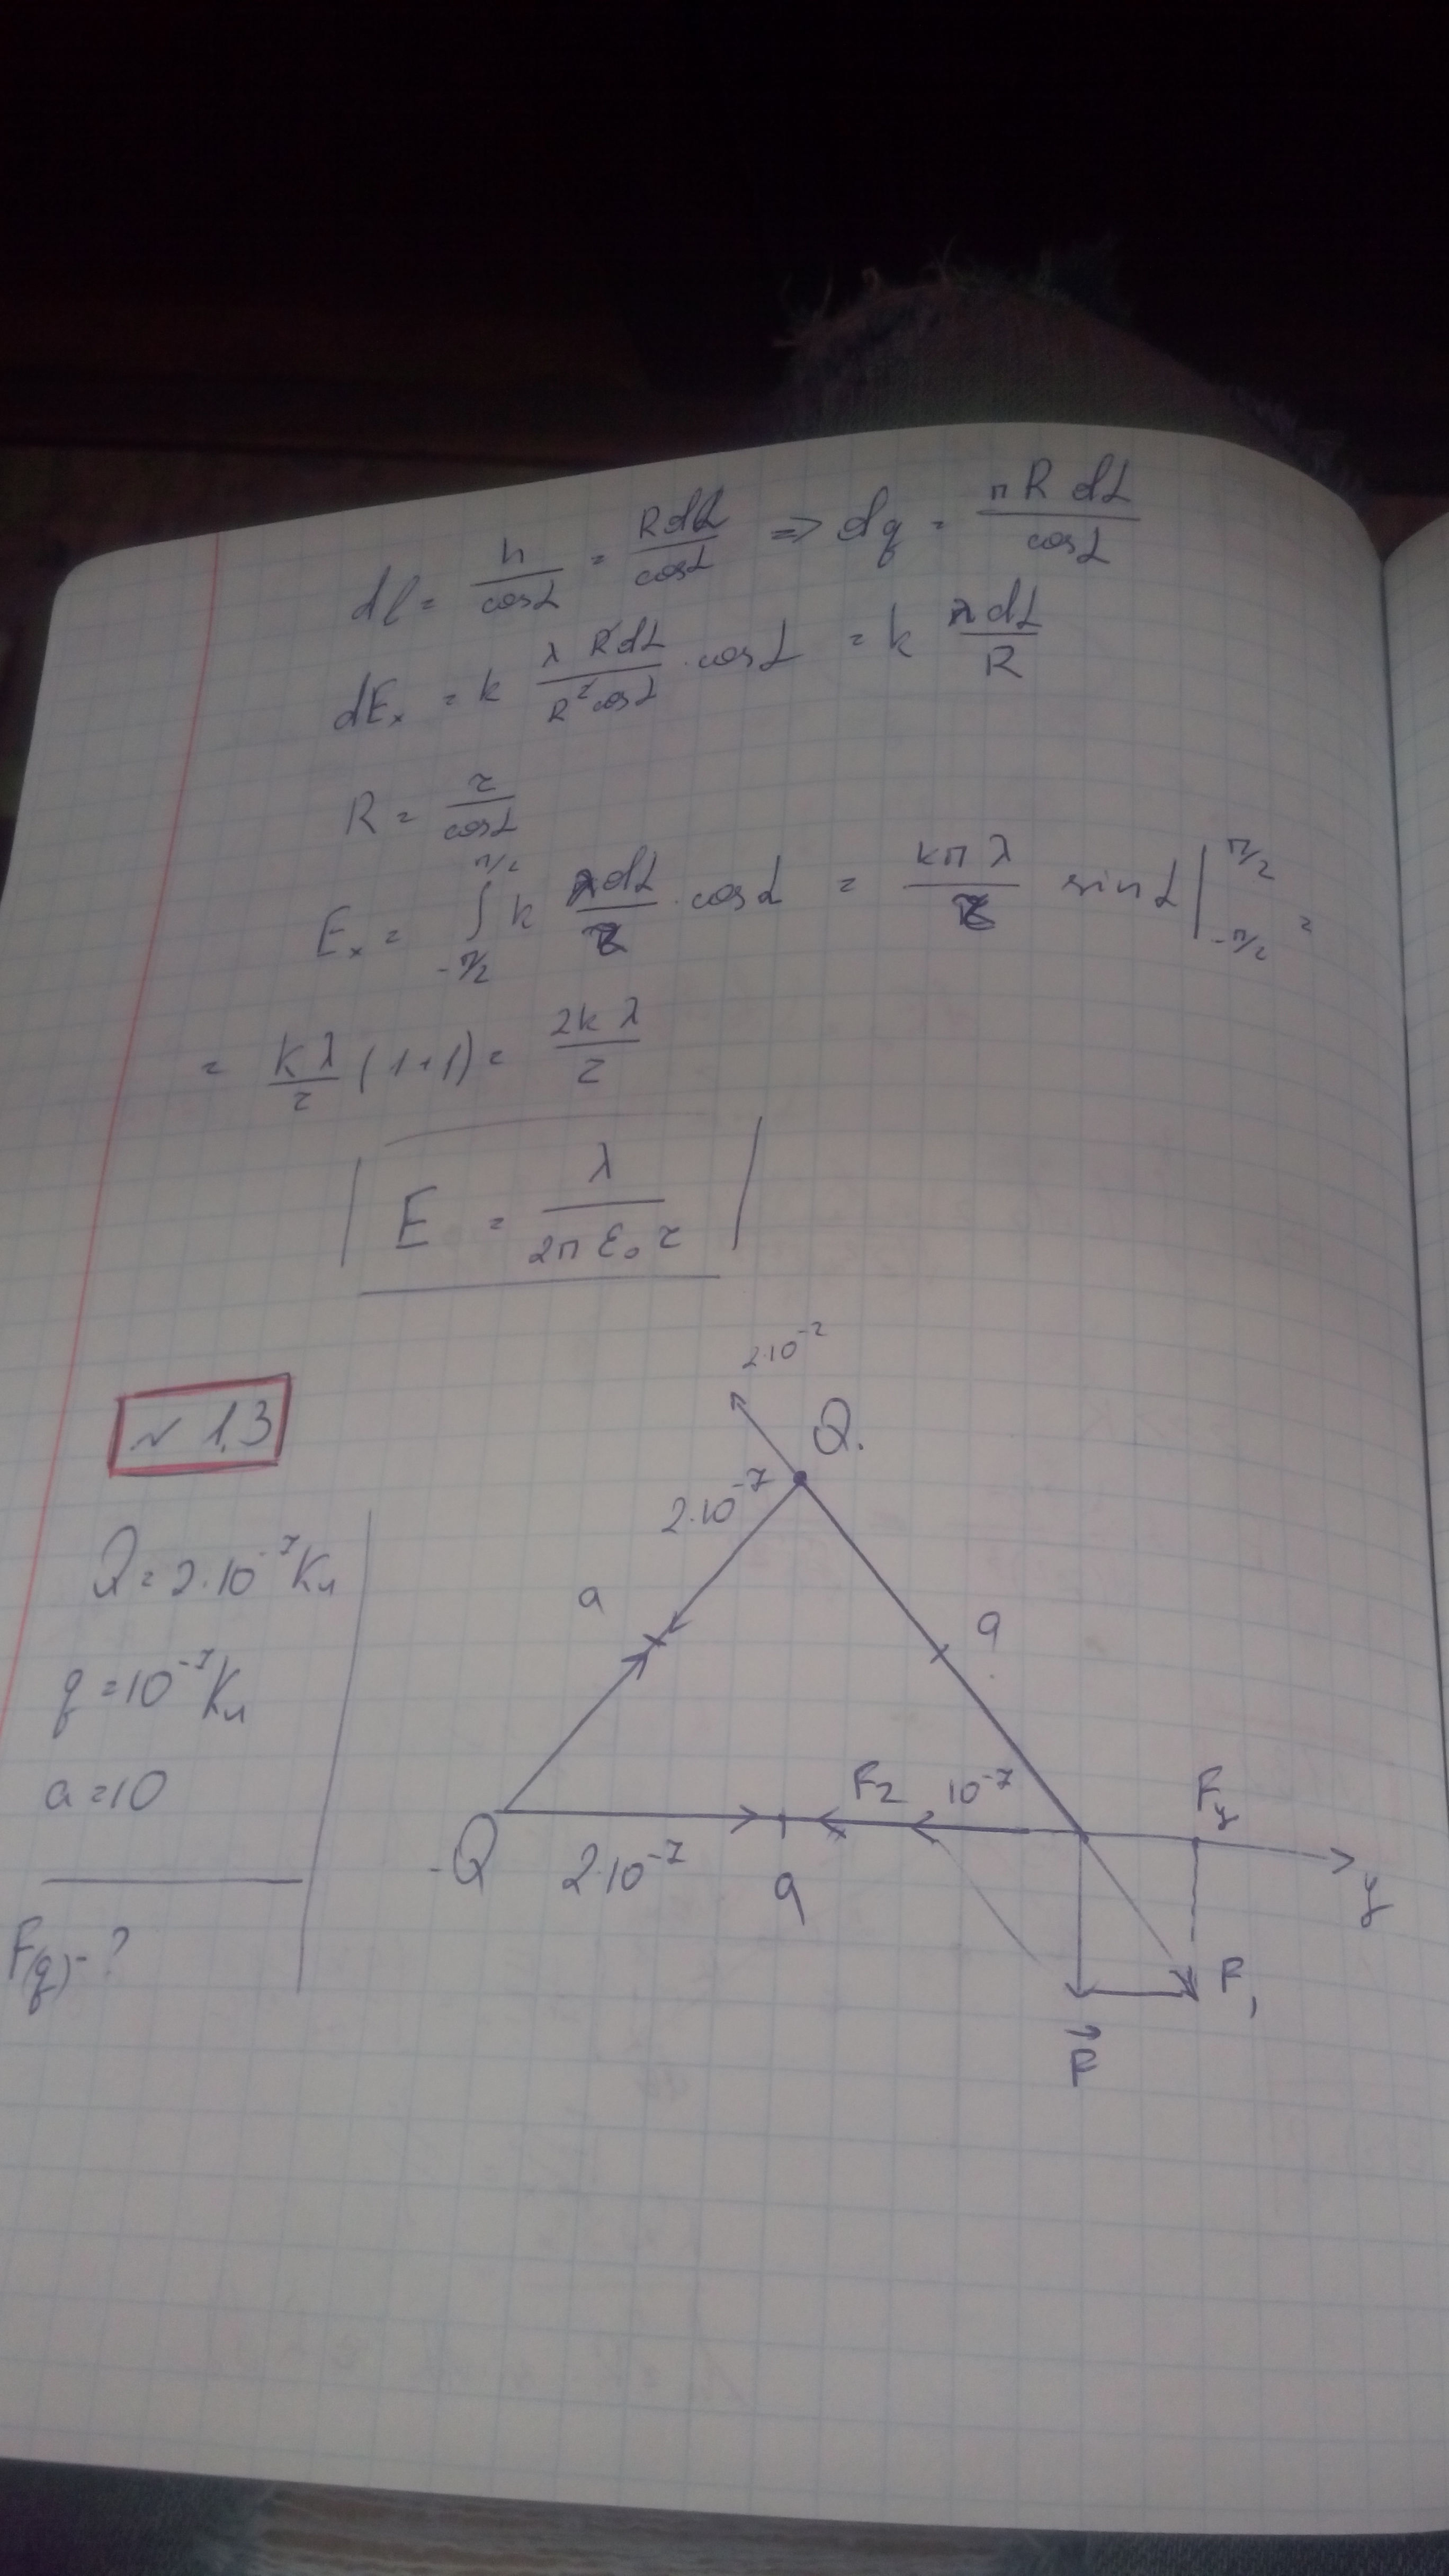 dl = h/cosα = Rdα/cosα => dq = πR dα/cosα
dEₓ = k λ Rdα/R²cosα · cosα = k λdα/R
R = r/cosα
Eₓ = ∫_{-π/2}^{π/2} k λdα/r · cosα = kπλ/r sinα |_{-π/2}^{π/2} =
= kλ/r (1+1) = 2kλ/r
E = λ/2πε₀r
2·10⁻²
№ 1,3
Q.
2·10⁻⁷
Q = 2·10⁻⁷Кл
a
a
q = 10⁻⁷Кл
a = 10
F₂
10⁻⁷
Fy
-Q
2·10⁻⁷
a
y
F(q) - ?
F₁
F⃗